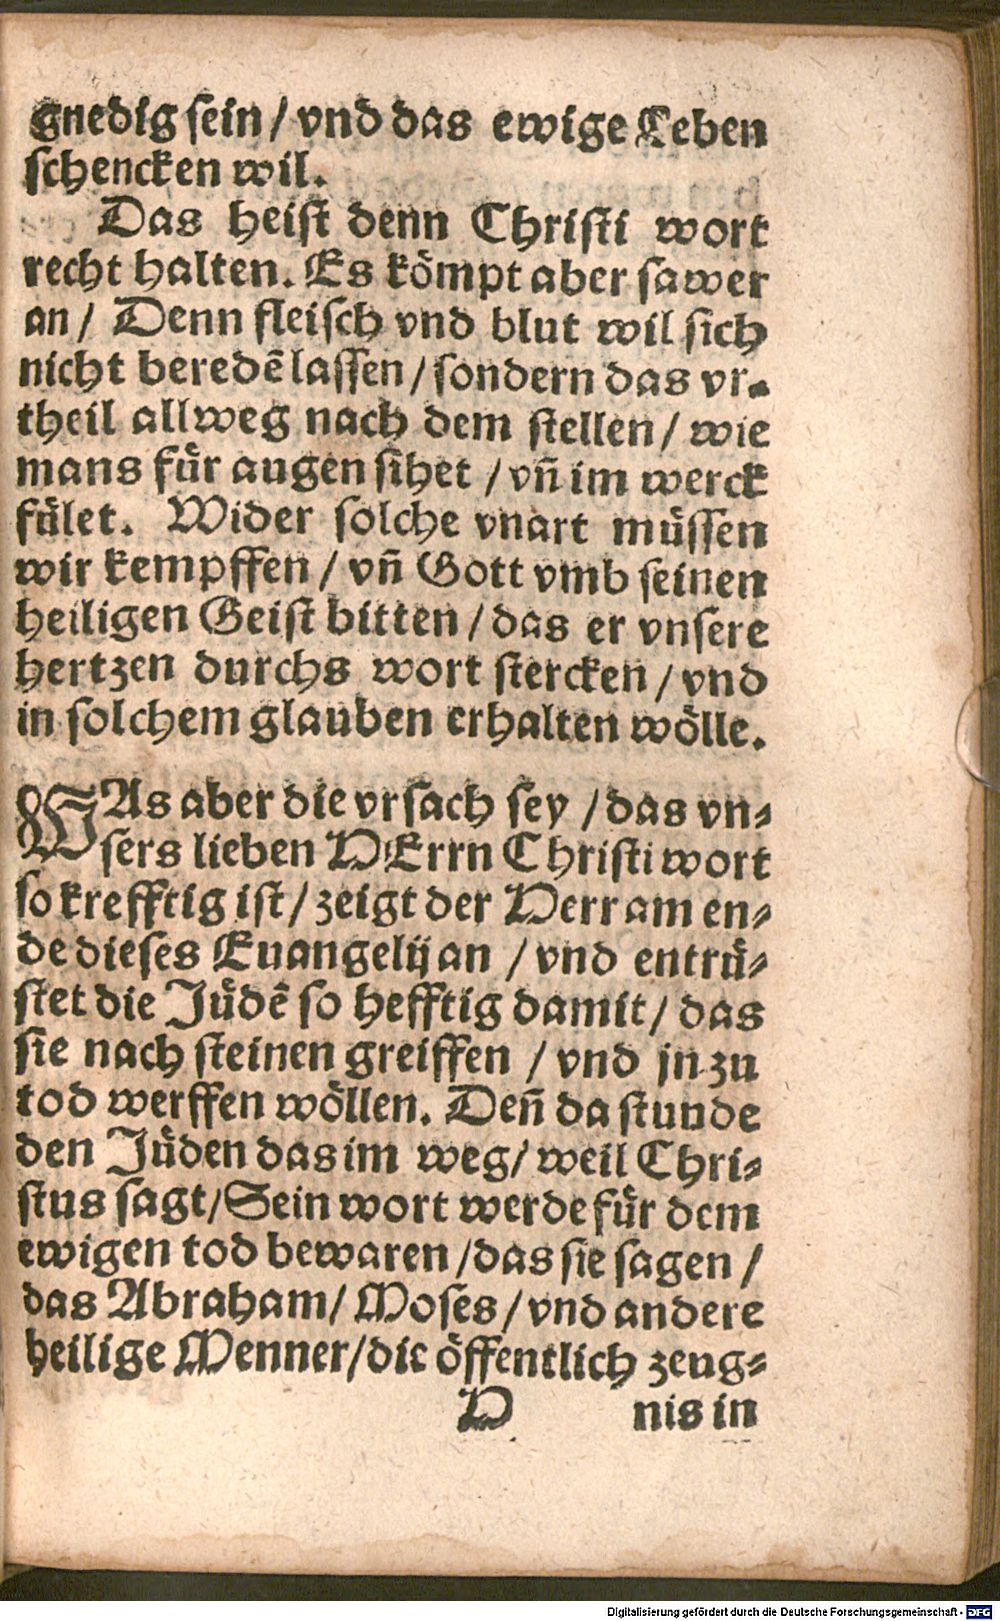 gnedig sein / vnd das ewige Leben
schencken wil.
Das heist denn Christi wort
recht halten. Es kömpt aber sawer
an / Denn fleisch vnd blut wil sich
nicht beredē lassen / sondern das vr-
theil allweg nach dem stellen / wie
mans für augen sihet / vn̄ im werck
fület. Wider solche vnart müssen
wir kempffen / vn̄ Gott vmb seinen
heiligen Geist bitten / das er vnsere
hertzen durchs wort stercken / vnd
in solchem glauben erhalten wölle.
WAs aber die vrsach sey / das vn-
sers lieben HErrn Christi wort
so krefftig ist / zeigt der Herr am en-
de dieses Euangelij an / vnd entrü-
stet die Jüdē so hefftig damit / das
sie nach steinen greiffen / vnd jn zu
tod werffen wöllen. Den̄ da stunde
den Jüden das im weg / weil Chri-
stus sagt / Sein wort werde für dem
ewigen tod bewaren / das sie sagen /
das Abraham / Moses / vnd andere
heilige Menner / die öffentlich zeug-
H nis in
Digitalisierung gefördert durch die Deutsche Forschungsgemeinschaft - DFG